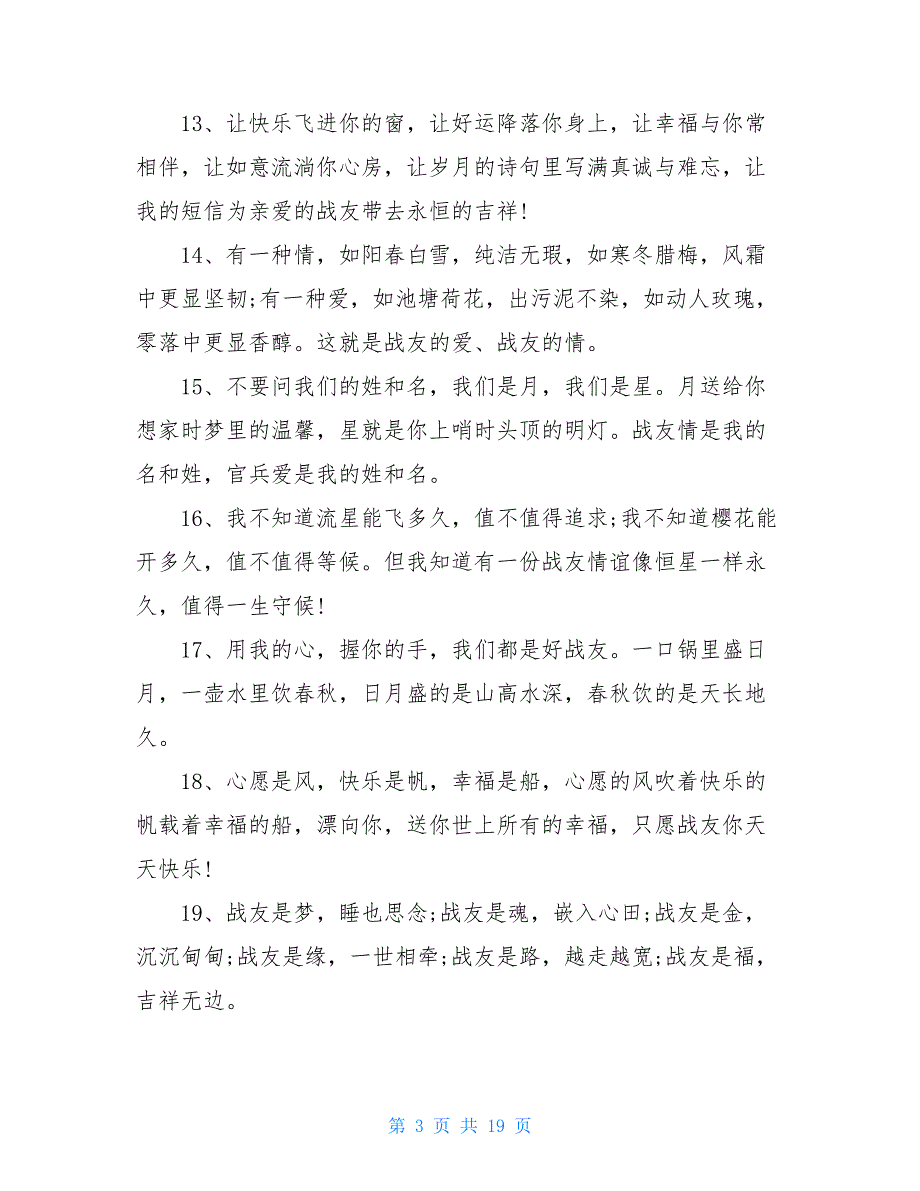 13、让快乐飞进你的窗，让好运降落你身上，让幸福与你常
相伴，让如意流淌你心房，让岁月的诗句里写满真诚与难忘，让
我的短信为亲爱的战友带去永恒的吉祥!
14、有一种情，如阳春白雪，纯洁无瑕，如寒冬腊梅，风霜
中更显坚韧;有一种爱，如池塘荷花，出污泥不染，如动人玫瑰，
零落中更显香醇。这就是战友的爱、战友的情。
15、不要问我们的姓和名，我们是月，我们是星。月送给你
想家时梦里的温馨，星就是你上哨时头顶的明灯。战友情是我的
名和姓，官兵爱是我的姓和名。
16、我不知道流星能飞多久，值不值得追求;我不知道樱花能
开多久，值不值得等候。但我知道有一份战友情谊像恒星一样永
久，值得一生守候!
17、用我的心，握你的手，我们都是好战友。一口锅里盛日
月，一壶水里饮春秋，日月盛的是山高水深，春秋饮的是天长地
久。
18、心愿是风，快乐是帆，幸福是船，心愿的风吹着快乐的
帆载着幸福的船，漂向你，送你世上所有的幸福，只愿战友你天
天快乐!
19、战友是梦，睡也思念;战友是魂，嵌入心田;战友是金，
沉沉甸甸;战友是缘，一世相牵;战友是路，越走越宽;战友是福，
吉祥无边。
第 3 页 共 19 页